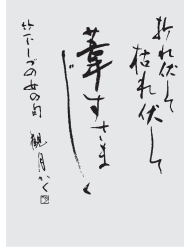 折れ伏して
枯れ伏して
葦すさま
じく
竹下しづの女の句
観月かく